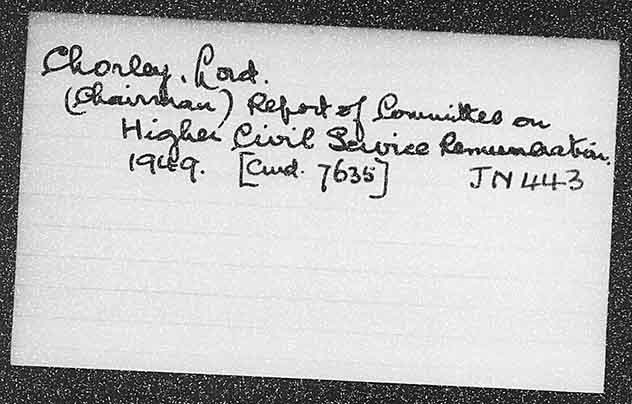 Chorley, Lord.
(Chairman) Report of Committee on
Higher Civil Service Remuneration.
1949. [Cmd. 7635] JN 443